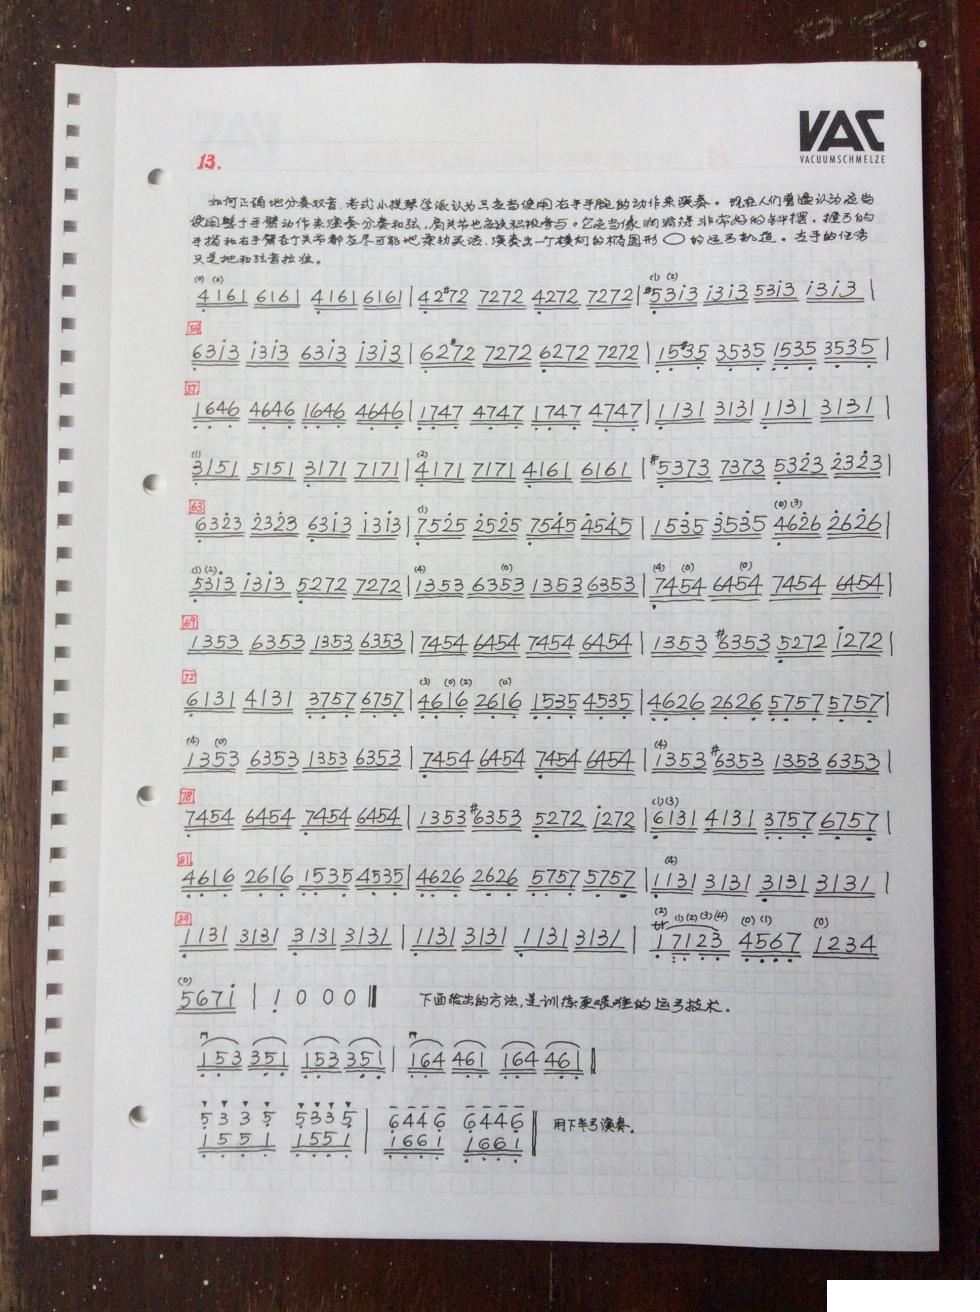 VAC
VACUUMSCHMELZE
13.
如何正确地分奏双音，老式小提琴学派认为只应当使用右手手腕的动作来演奏。现在人们普遍认为应当
使用整个手臂动作来演奏分奏和弦，肩关节也应该积极参与。它应当像润滑得非常好的钟摆，握弓的
手指和右手臂各个关节都应尽可能地柔软灵活，演奏出一个横向的椭圆形 ⬭ 的运弓轨道。左手的任务
只是把和弦音按准。
(0) (0) (1) (2)
4161 6161 4161 6161 | 42#72 7272 4272 7272 | #53i3 i3i3 53i3 i3i3 |
54
63i3 i3i3 63i3 i3i3 | 62#72 7272 6272 7272 | 15#35 3535 1535 3535 |
57
1646 4646 1646 4646 | 1747 4747 1747 4747 | 1131 3131 1131 3131 |
(1) (2)
3151 5151 3171 7171 | 4171 7171 4161 6161 | #5373 7373 5323 2323 |
63 (1) (0) (3)
6323 2323 63i3 i3i3 | 7525 2525 7545 4545 | 1535 3535 4626 2626 |
(1) (2) (4) (0) (4) (0) (0)
53i3 i3i3 5272 7272 | 1353 6353 1353 6353 | 7454 6454 7454 6454 |
69
1353 6353 1353 6353 | 7454 6454 7454 6454 | 1353 #6353 5272 i272 |
72 (3) (0) (2) (0)
6131 4131 3757 6757 | 4616 2616 1535 4535 | 4626 2626 5757 5757 |
(4) (0) (4)
1353 6353 1353 6353 | 7454 6454 7454 6454 | 1353 #6353 1353 6353 |
78 (1) (3)
7454 6454 7454 6454 | 1353 #6353 5272 i272 | 6131 4131 3757 6757 |
81 (4)
4616 2616 1535 4535 | 4626 2626 5757 5757 | 1131 3131 3131 3131 |
84 (2) tr (1) (2) (3) (4) (0) (1) (0)
1131 3131 3131 3131 | 1131 3131 1131 3131 | 1 7123 4567 1234
(0)
567i | 1 0 0 0 ‖ 下面给出的方法，是训练更艰难的运弓技术。
153 351 153 351 | 164 461 164 461 ‖
5335 5335 | 6446 6446 ‖ 用下半弓演奏。
1551 1551 | 1661 1661